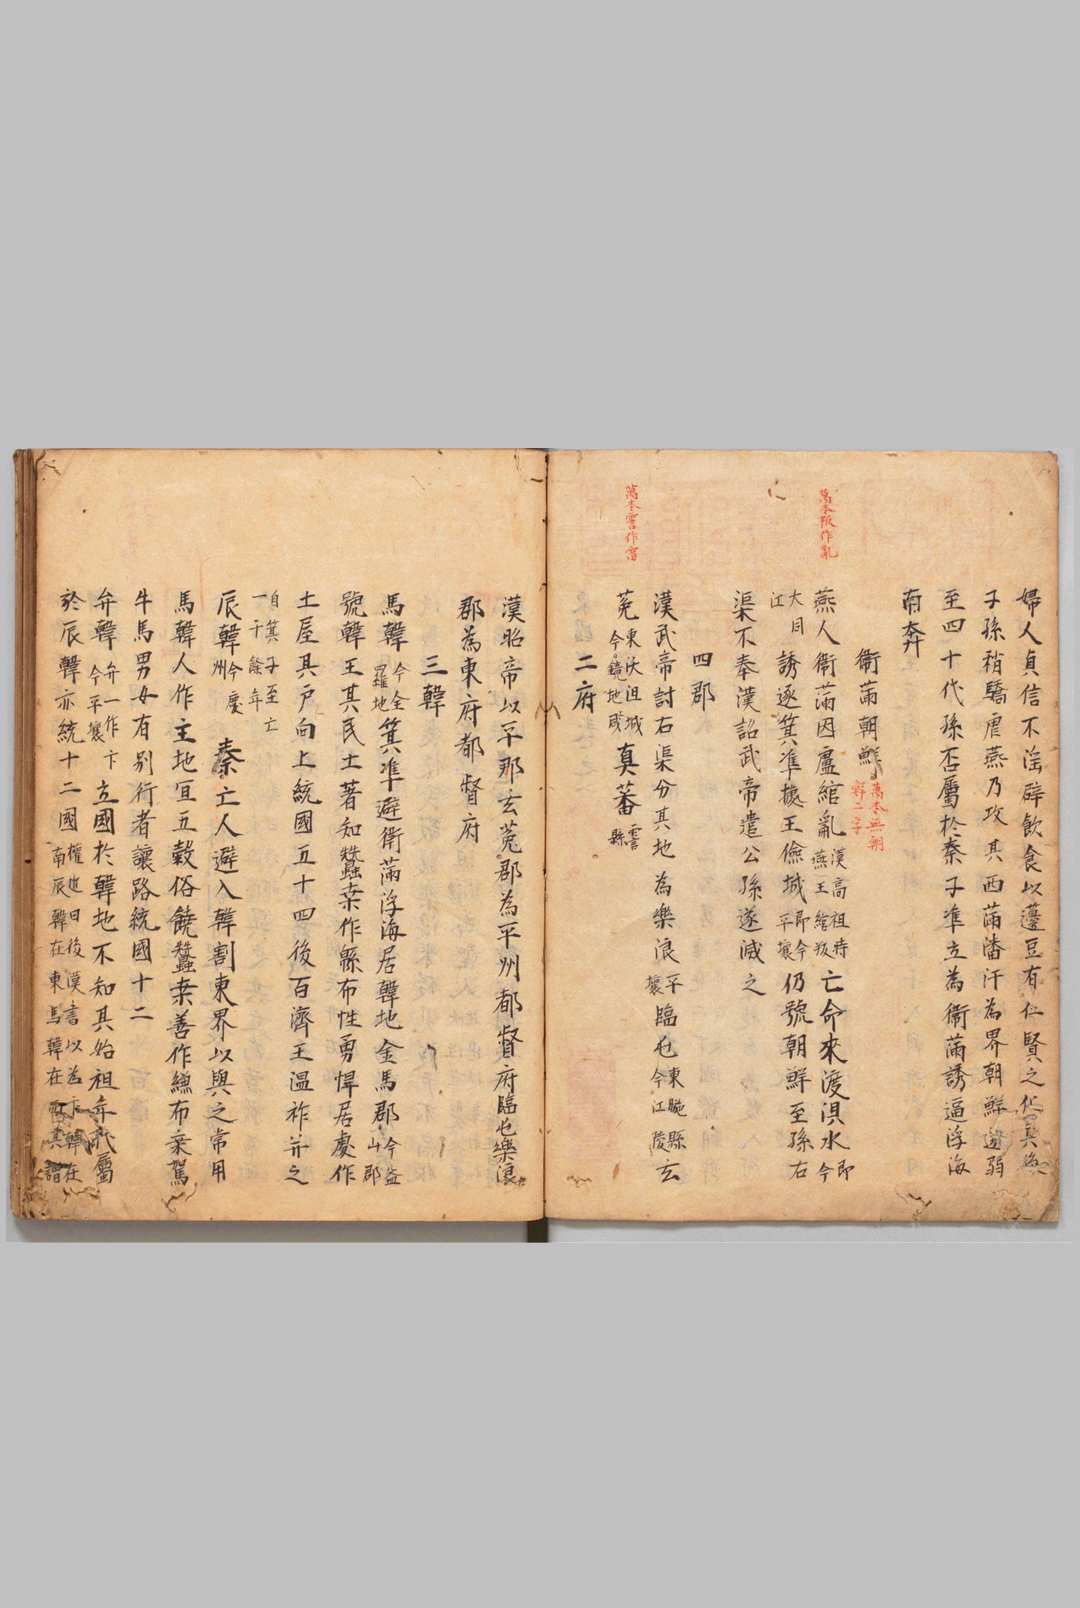 婦人貞信不淫辟飲食以籩豆有仁賢之化
子孫稍驕虐燕乃攻其西滿潘汗為界朝鮮遂弱
至四十代孫否屬於秦子準立為衛滿誘逼浮海
南奔
衛滿朝鮮
萬本無朝
鮮二字
萬本叛作亂
燕人衛滿因盧綰亂漢高祖時燕王綰叛亡命來渡浿水即今
大同江誘逐箕準據王儉城即今平壤仍號朝鮮至孫右
渠不奉漢詔武帝遣公孫遂滅之
四郡
漢武帝討右渠分其地為樂浪平壤臨屯東暆縣今江陵玄
萬本霅作雷
菟東沃沮城今鏡地或真蕃霅縣
二府
漢昭帝以平那玄菟郡為平州都督府臨屯樂浪
郡為東府都督府
三韓
馬韓今全羅地箕準避衛滿浮海居韓地金馬郡今益山郡
號韓王其民土著知蠶桑作緜布性勇悍居處作
土屋其戶向上統國五十四後百濟王温祚并之
自箕子至亡
一千餘年
辰韓今慶州秦亡人避入韓割東界以與之常用
馬韓人作主地宜五穀俗饒蠶桑善作縑布乗駕
牛馬男女有別行者讓路統國十二
弁韓弁一作卞今平壤立國於韓地不知其始祖年代屬
於辰韓亦統十二國權近曰後漢書以為卞韓在南辰韓在東馬韓在西其謂